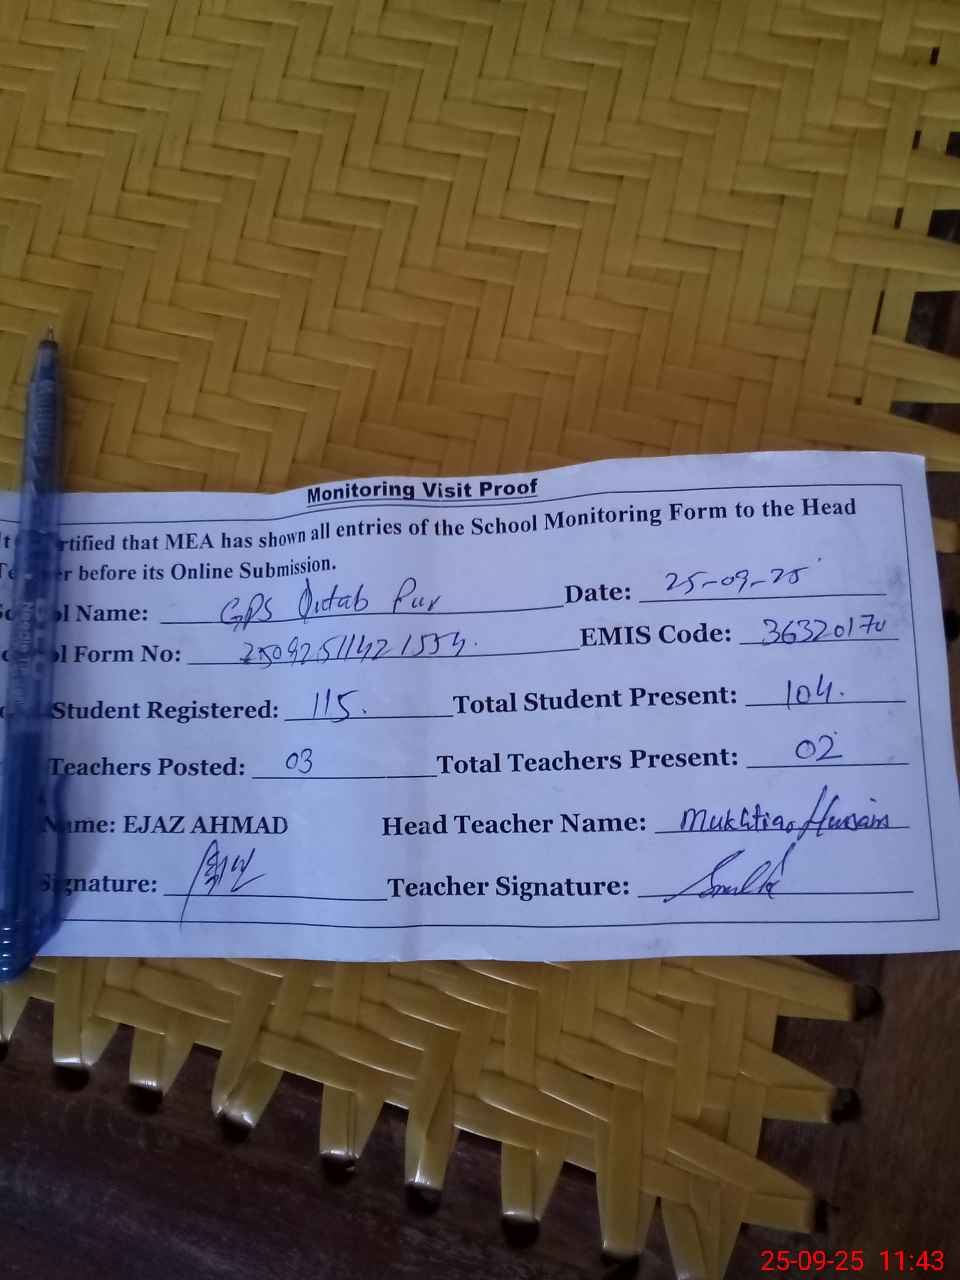 Monitoring Visit Proof
rtified that MEA has shown all entries of the School Monitoring Form to the Head
er before its Online Submission.
ol Name: GPS Qutab Pur Date: 25-09-25
ol Form No: EMIS Code: 36320170
Student Registered: 115. Total Student Present: 104.
Teachers Posted: 03 Total Teachers Present: 02
Name: EJAZ AHMAD Head Teacher Name: Mukhtiar Hussain
Signature: Teacher Signature:
25-09-25 11:43